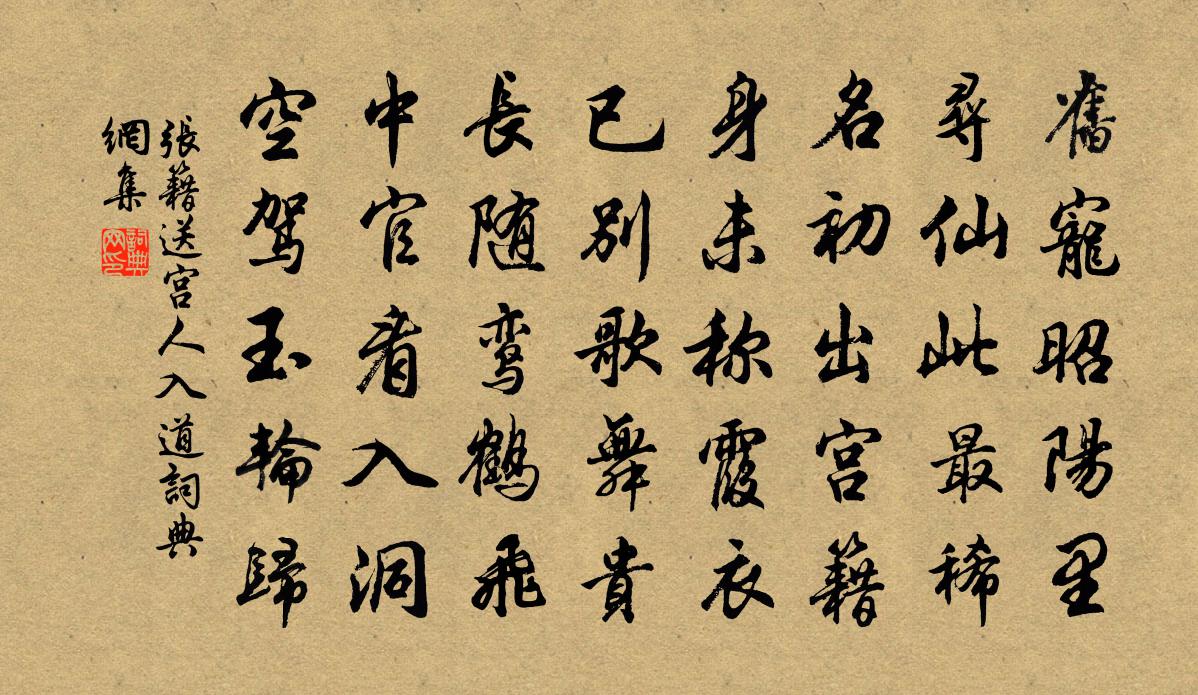 舊寵昭陽里
尋仙此最稀
名初出宮籍
身未称霞衣
已別歌舞貴
長随鸾鶴飛
中官看入洞
空驾玉輪歸
張籍送宮人入道詞典
網集
詞典
网印